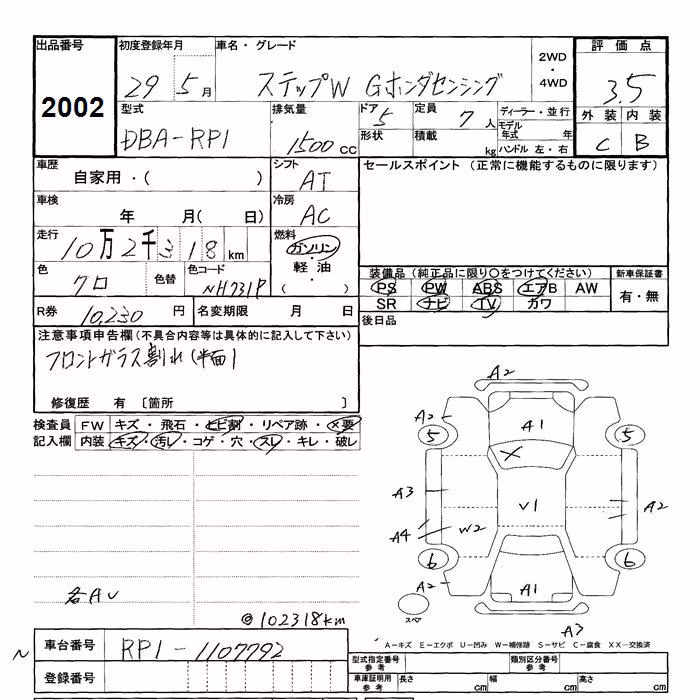 出品番号 初度登録年月 車名・グレード 評価点
2002 29 5月 ステップW Gホンダセンシング 2WD・4WD 3.5
型式 排気量 ドア 定員 ディーラー・並行 外装 内装
DBA-RP1 1500cc 5 7人 モデル年式 年 C B
形状 積載 kg ハンドル 左・右
車歴 シフト セールスポイント (正常に機能するものに限ります)
自家用・( ) AT
車検 冷房
年 月( 日) AC
走行 燃料
10万2千318km ガソリン・軽油・( )
色 色替 色コード 装備品 (純正品に限り○をつけてください) 新車保証書
クロ NH731P PS PW ABS エアB AW 有・無
SR ナビ TV カワ
R券 10,230円 名変期限 月 日 後日品
注意事項申告欄(不具合内容等は具体的に記入して下さい)
フロントガラス割れ(半面)
修復歴 有 〔箇所 〕
検査員 FW キズ・飛石・ヒビ割・リペア跡・×要
記入欄 内装 キズ・汚レ・コゲ・穴・スレ・キレ・破レ
A2
A2 A1
5 X 5
A3 V1 A2
A4 W2
6 6
A2 A1
スペア
A3
◎102318km
車台番号 RP1-1107792
登録番号
A-キズ E-エクボ U-凹み W-補修跡 S-サビ C-腐食 XX-交換済
型式指定番号 参考 類別区分番号 参考
車庫証明用 参考 長さ cm 幅 cm 高さ cm